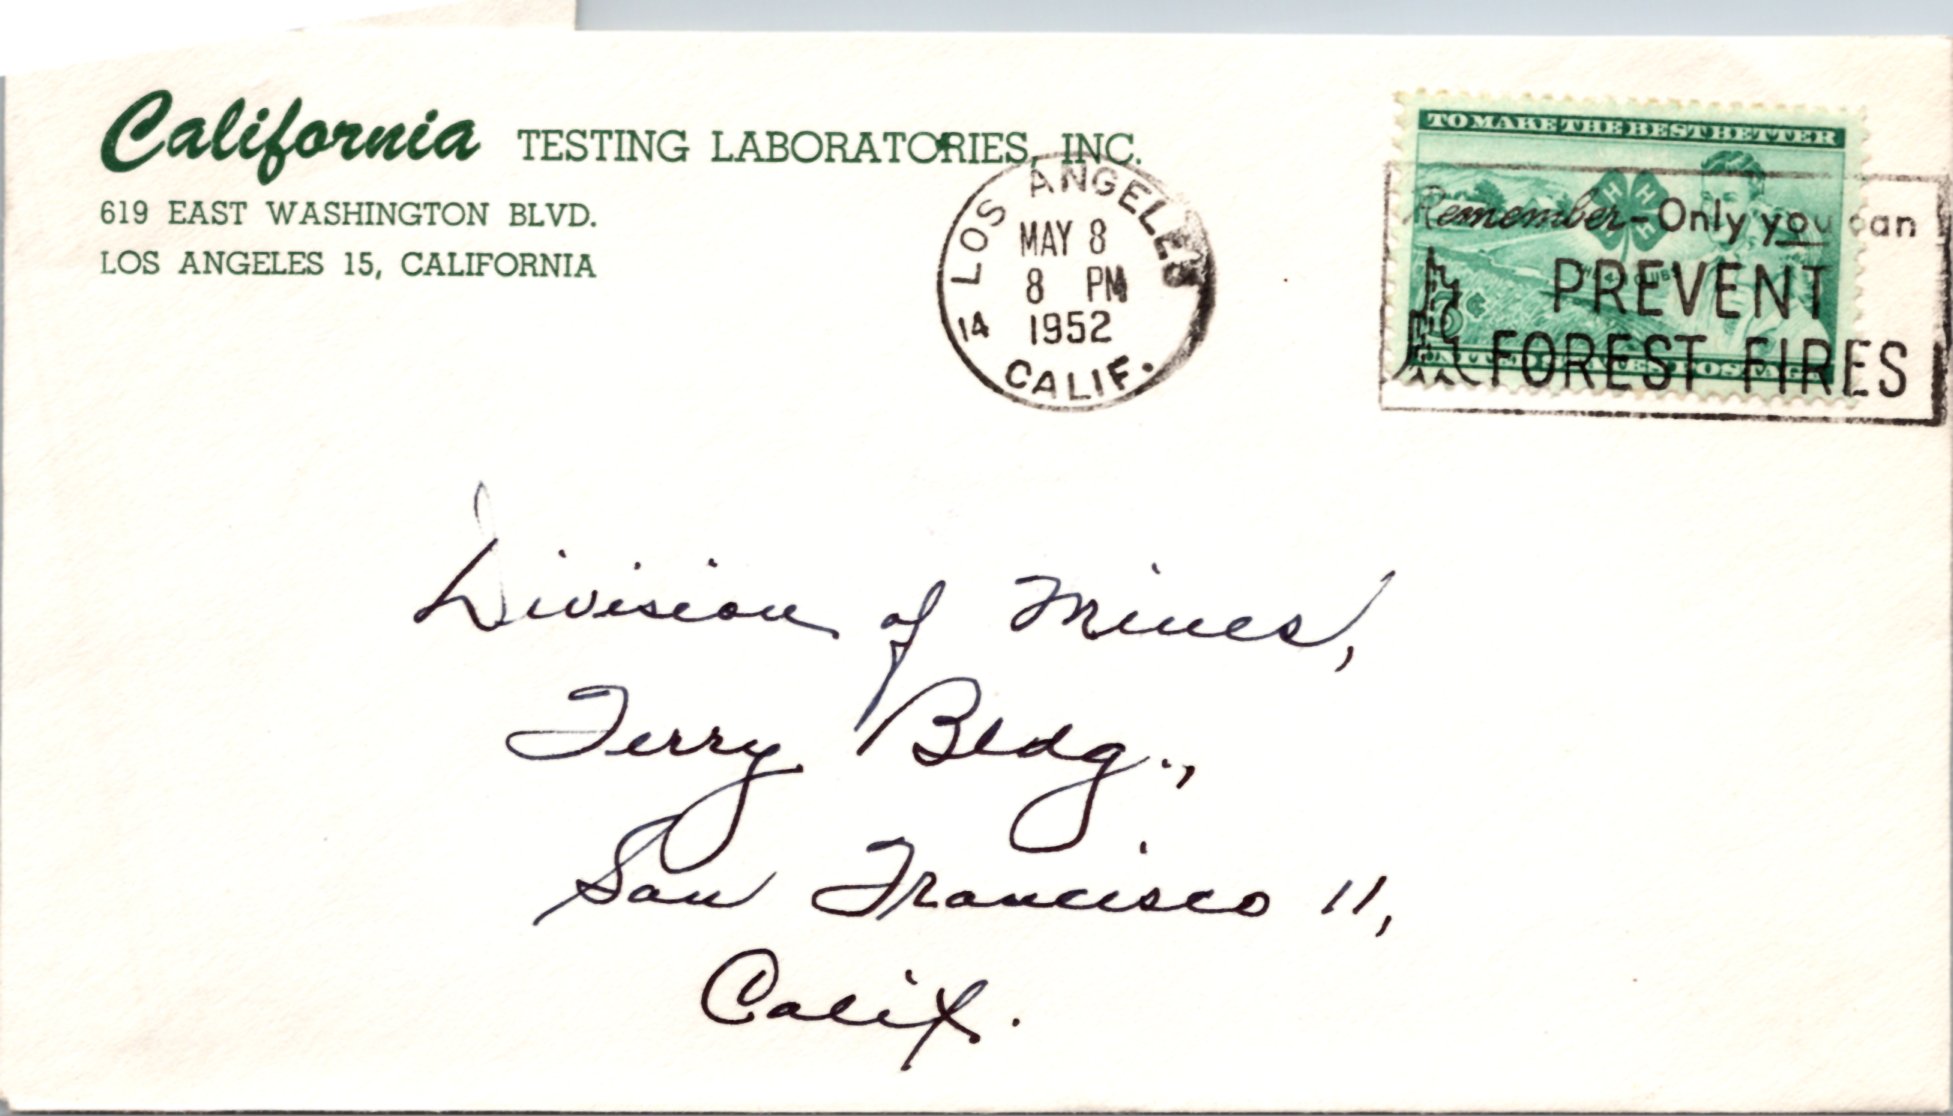 California TESTING LABORATORIES, INC.
619 EAST WASHINGTON BLVD.
LOS ANGELES 15, CALIFORNIA
LOS ANGELES
MAY 8
8 PM
1952
14
CALIF.
TO MAKE THE BEST BETTER
H H
H H
3¢
UNITED STATES POSTAGE
Remember-Only you can
PREVENT
FOREST FIRES
Division of Mines,
Ferry Bldg.,
San Francisco 11,
Calif.